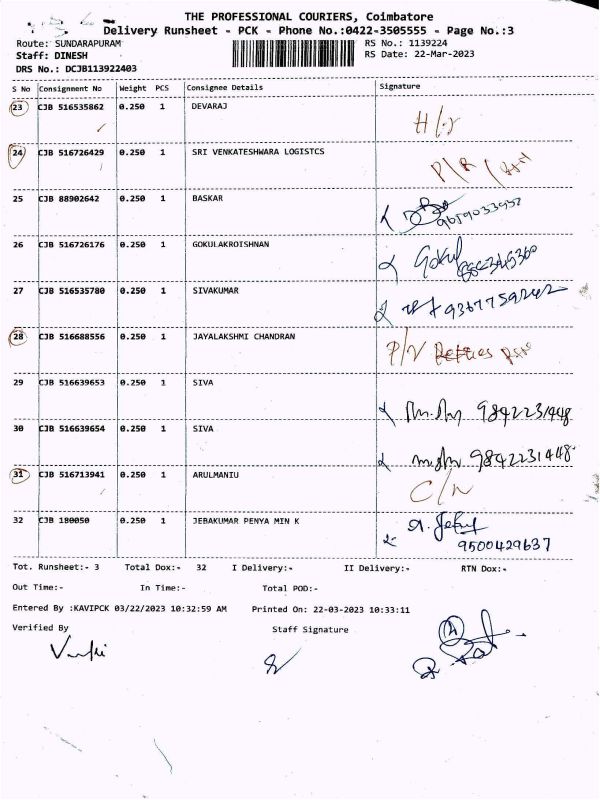 THE PROFESSIONAL COURIERS, Coimbatore
Delivery Runsheet - PCK - Phone No.:0422-3505555 - Page No.:3
Route: SUNDARAPURAM RS No.: 1139224
Staff: DINESH RS Date: 22-Mar-2023
DRS No.: DCJB113922403
S No Consignment No Weight PCS Consignee Details Signature
23 CJB 516535862 0.250 1 DEVARAJ
24 CJB 516726429 0.250 1 SRI VENKATESHWARA LOGISTCS
25 CJB 88902642 0.250 1 BASKAR
26 CJB 516726176 0.250 1 GOKULAKROITSHNAN Gokul
27 CJB 516535780 0.250 1 SIVAKUMAR 9367759242
28 CJB 516688556 0.250 1 JAYALAKSHMI CHANDRAN
29 CJB 516639653 0.250 1 SIVA 9842231448
30 CJB 516639654 0.250 1 SIVA 9842231448
31 CJB 516713941 0.250 1 ARULMANIU
32 CJB 180050 0.250 1 JEBAKUMAR PENYA MIN K 9500429637
Tot. Runsheet:- 3 Total Dox:- 32 I Delivery:- II Delivery:- RTN Dox:-
Out Time:- In Time:- Total POD:-
Entered By :KAVIPCK 03/22/2023 10:32:59 AM Printed On: 22-03-2023 10:33:11
Verified By Staff Signature